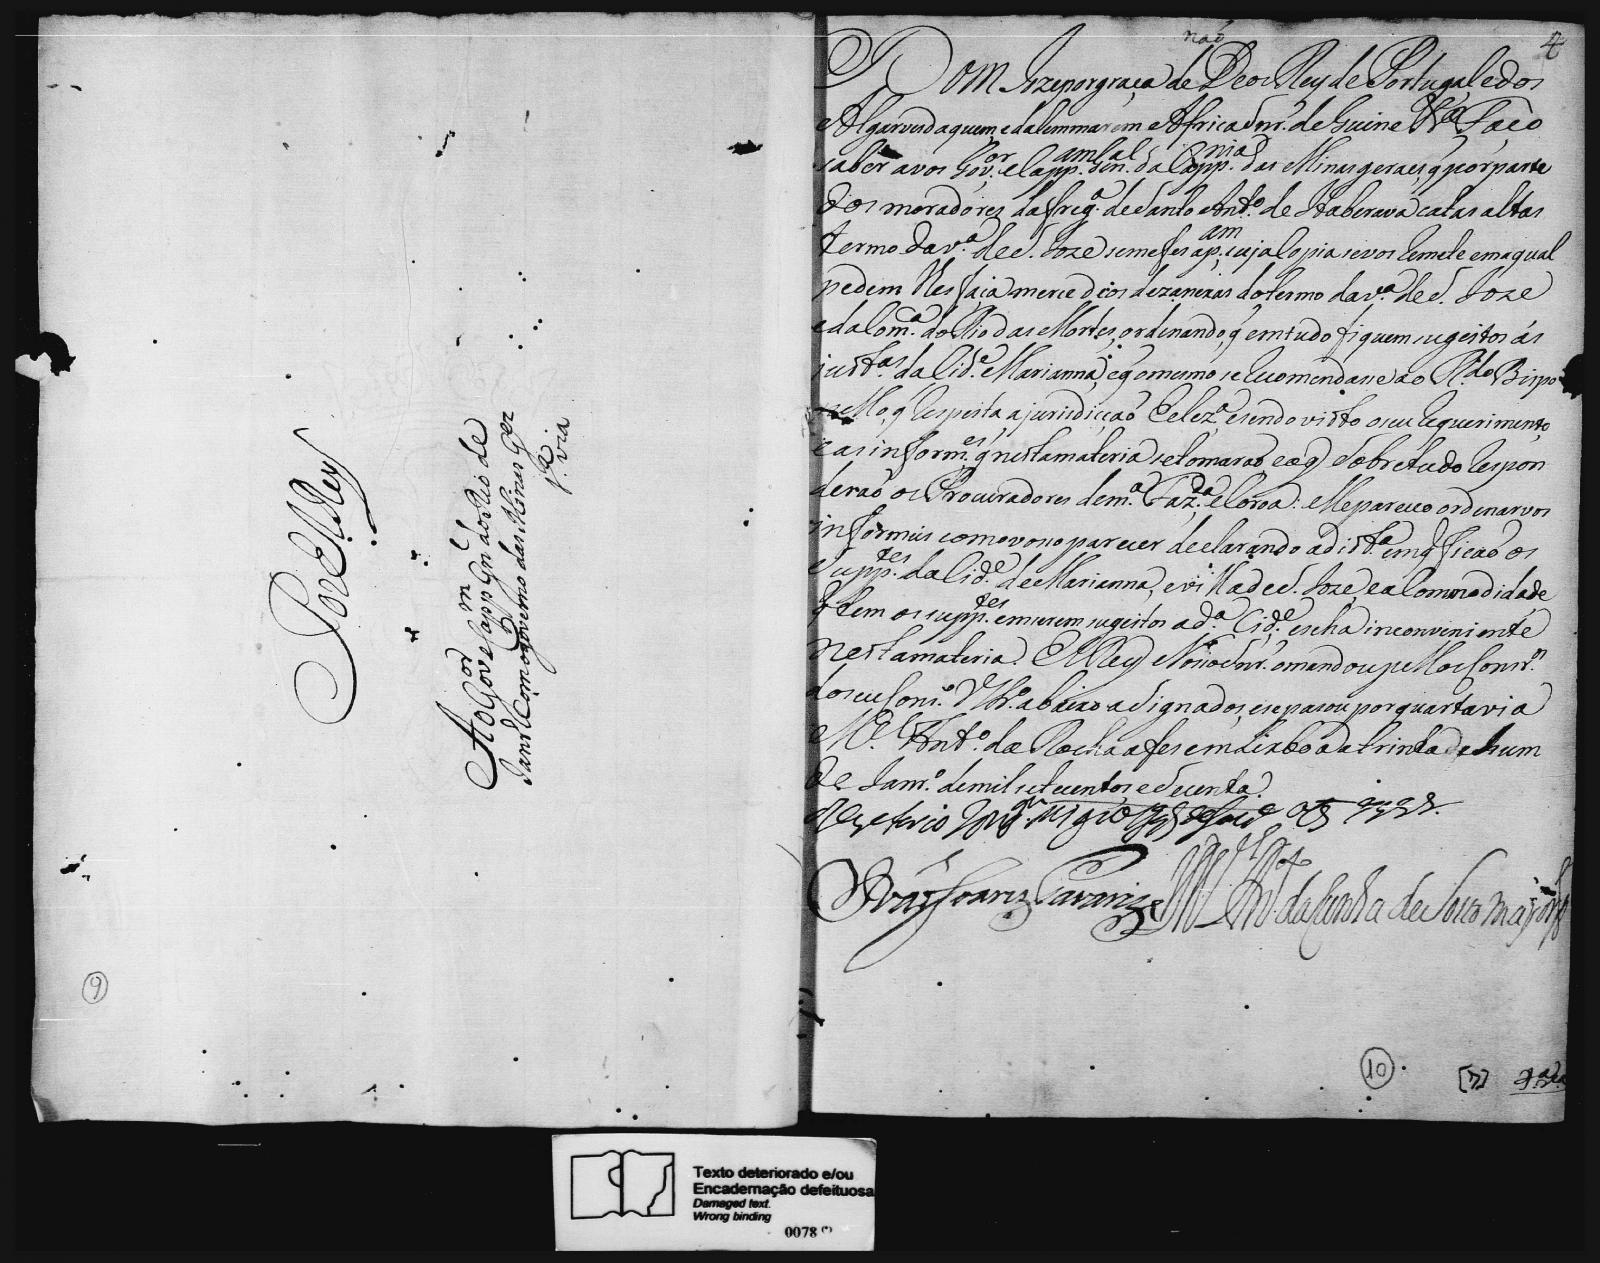 Por El Rey
Ao Gov.or e Capp.m Gn.l do Rio de
Janr.o Com o governo das Minas Ger.es
4.a via
9
não
4
Dom Joze por graça de Deos Rey de Portugal e dos
Algarves daquem, e dalem mar em Africa Snr. de Guine &.a Faço
saber a vos Gov.or e Capp.am Gen.al da Capp.nia das Minas geraes, q por parte
dos moradores da freg.a de Santo Ant.o de Itaberava catas altas
termo da v.a de S. Joze se me fes a p.am, cuja Copia se vos remete em a qual
pedem lhes faça merce dios dezanexar do termo da v.a de S. Joze
e da Com.a do Rio das Mortes, ordenando, q em tudo fiquem sugeitos ás
just.as da Cid.e Marianna, e q o mesmo se recomendasse ao R.do Bispo
pello, q respeita a jurisdicçaõ Eclez.a, e sendo visto o seu requerimento,
e as inform.es, q nesta materia se tomaraõ, e o q sobre tudo respon
deraõ os Procuradores de m.a Faz.da, e Coroa: Me pareceo ordenarvos
informeis com o voso parecer declarando a dist.a em q ficaõ os
Supp.tes da Cid.e de Marianna, e villa de S. Joze, e a Commodidade
q tem os supp.tes em serem sugeitos a d.a Cid.e, e se ha inconveniente
nesta materia. El Rey Noso Snr. o mandou pellos Cons.ros
do seu Cons.o Ultr.o abaixo asignados, e se pasou por quarta via
M.el Ant.o da Rocha a fes em Lixboa a trinta de hum
de Janr.o de mil setecentos e secenta.
Bras Soares
M.el Ant.o da Cunha de Souto mayor
10
[7]
Texto deteriorado e/ou
Encadernação defeituosa
Damaged text.
Wrong binding
0078